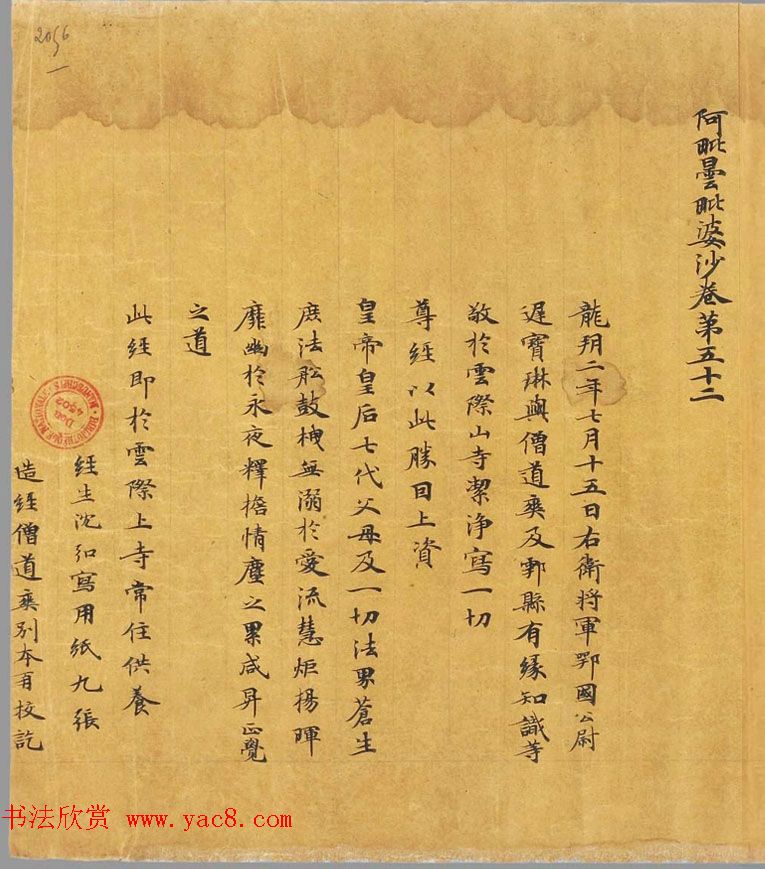 2056
阿毗曇毗婆沙卷第五十二
龍朔二年七月十五日右衛将軍鄂國公尉
遲寳琳與僧道爽及鄠縣有縁知識等
敬於雲際山寺潔浄寫一切
尊經以此勝因上資
皇帝皇后七代父母及一切法界蒼生
庶法舩鼓枻無溺於愛流慧炬揚暉
靡幽於永夜釋擔情塵之累咸昇正覺
之道
此經即於雲際上寺常住供養
經生沈弘寫用紙九張
造經僧道爽別本再校訖
Doc
4502
书法欣赏 www.yac8.com